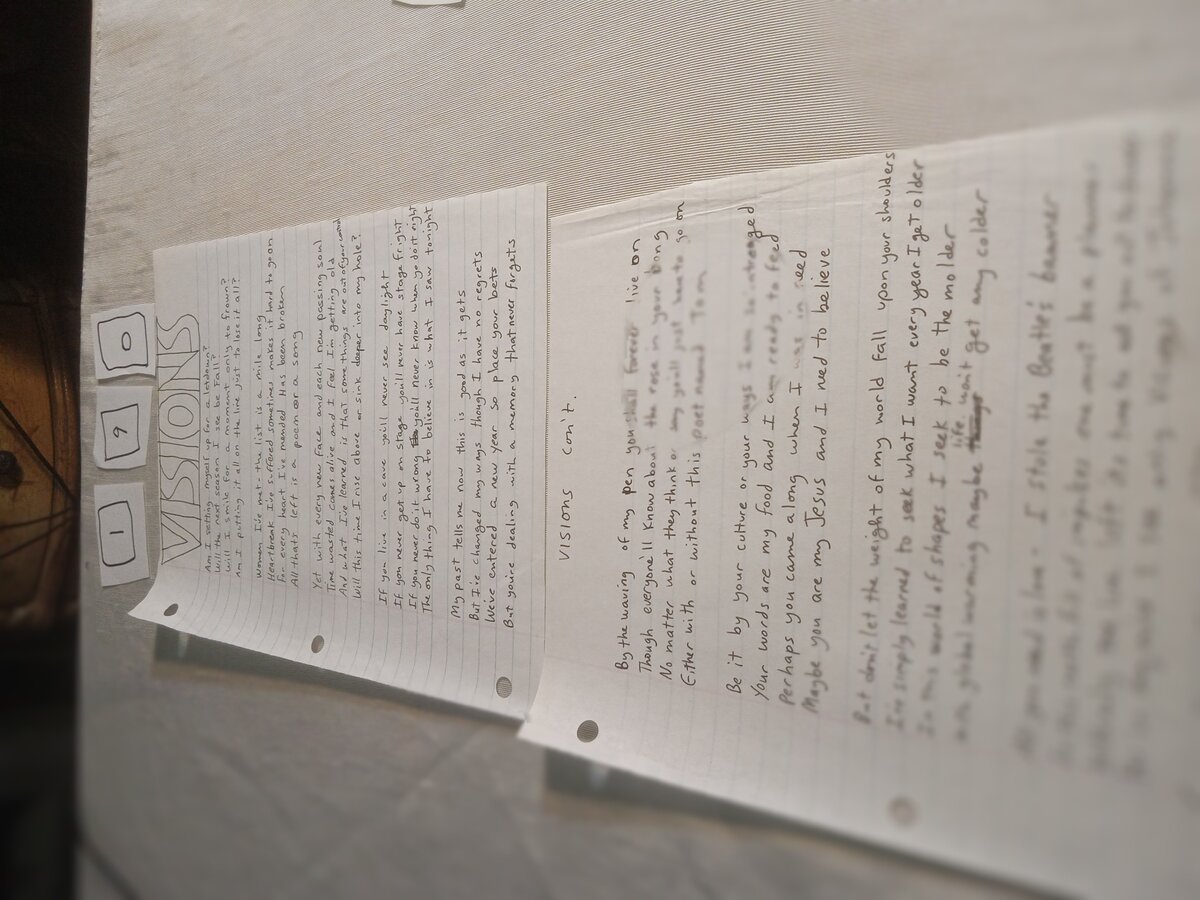 1 9 0
VISIONS
Am I setting myself up for a letdown?
Will the next season I see be Fall?
Will I smile for a moment only to frown?
Am I putting it all on the line just to lose it all?
Women I've met - the list is a mile long
Heartbreak I've suffered sometimes makes it hard to go on
For every heart I've mended Has been broken
All that's left is a poem or a song
Yet with every new face and each new passing soul
Time wasted comes alive and I feel I'm getting old
And what I've learned is that some things are out of your control
Will this time I rise above or sink deeper into my hole?
If you live in a cave you'll never see daylight
If you never get up on stage you'll never have stage fright
If you never do it wrong you'll never know when you do it right
The only thing I have to believe in is what I saw tonight
My past tells me now this is good as it gets
But I've changed my ways though I have no regrets
We've entered a new year so place your bets
But you're dealing with a memory that never forgets
VISIONS cont.
By the waving of my pen you shall forever live on
Though everyone'll know about the rose in your bong
No matter what they think or say you'll just have to go on
Either with or without this poet named Tom
Be it by your culture or your ways I am so intrigued
Your words are my food and I am ready to feed
Perhaps you came along when I was in need
Maybe you are my Jesus and I need to believe
But don't let the weight of my world fall upon your shoulders
I've simply learned to seek what I want every year I get older
In this world of shapes I seek to be the molder
With global warming maybe life won't get any colder
I stole the Beatle's banner